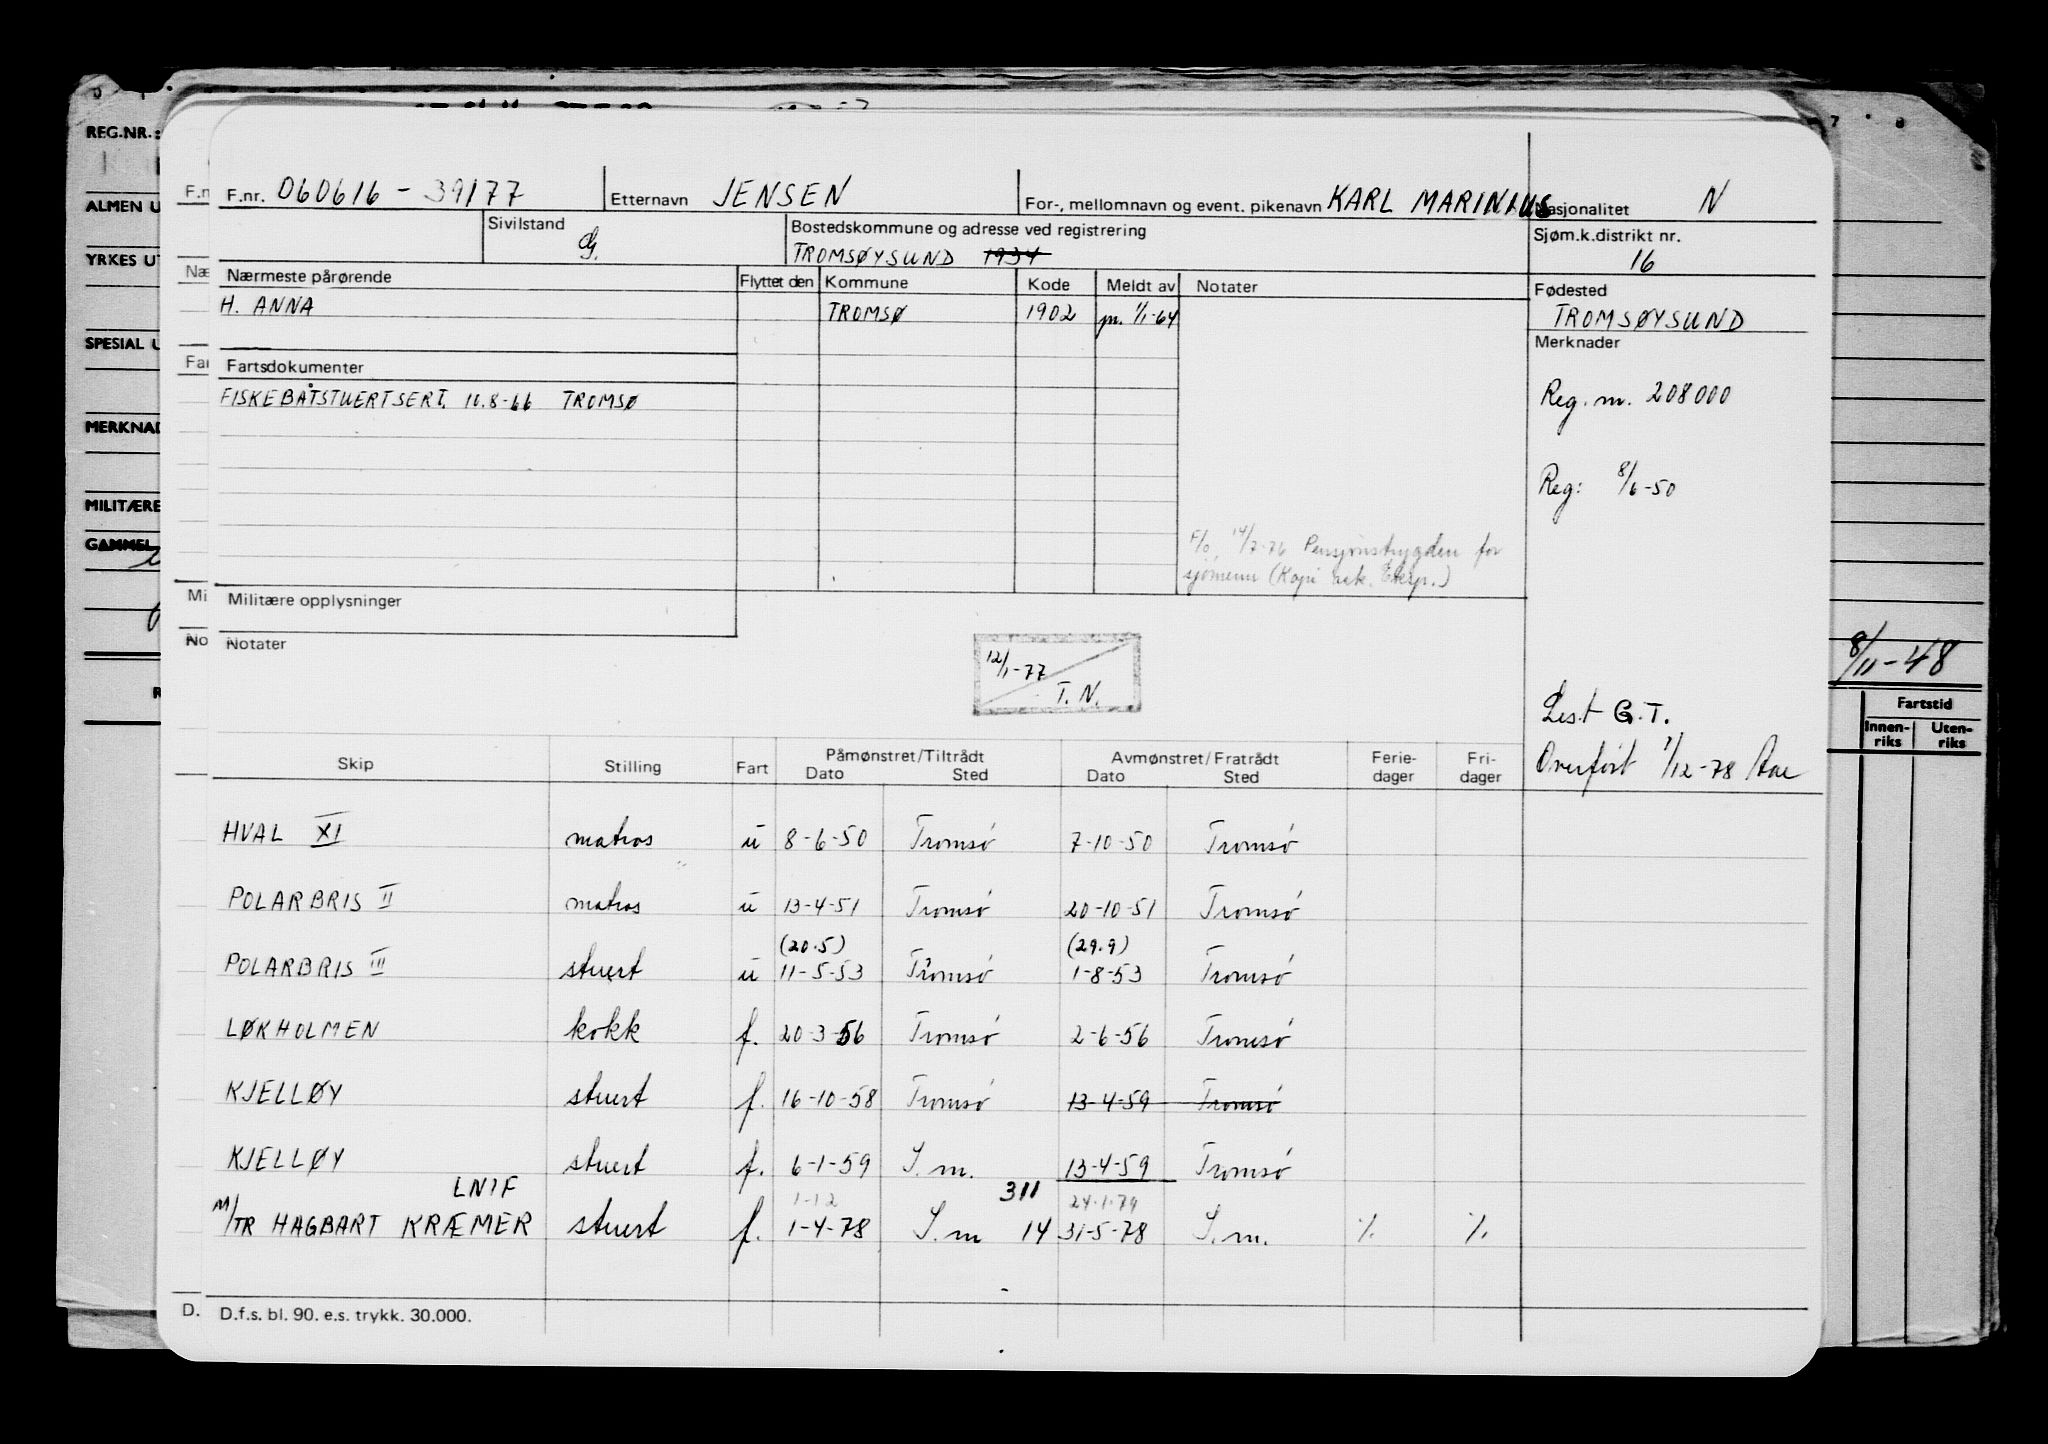 REG.NR.:
F.nr. 060616 - 39177 Etternavn JENSEN For-, mellomnavn og event. pikenavn KARL MARINIUS Nasjonalitet N
ALMEN U
Sivilstand G. Bostedskommune og adresse ved registrering Sjøm.k.distrikt nr.
TROMSØYSUND 1934 16
YRKES UT
Nærmeste pårørende Flyttet den Kommune Kode Meldt av Notater Fødested
H. ANNA TROMSØ 1902 pr. 1/1-64 TROMSØYSUND
SPESIAL U
Fartsdokumenter Merknader
FISKEBÅTSTUERTSERT. 10.8-66 TROMSØ Reg. nr. 208000
MERKNAD
Reg: 8/6-50
MILITÆRE
GAMMEL
F/o, 14/7-76 Pensjonstrygden for
sjømenn (Kopi ark. Eksp.)
Militære opplysninger
Notater
12/1-77
T. N.
8/11-48
Lest G.T.
Overført 1/12-78
Fartstid
Innen-riks Uten-riks
Skip Stilling Fart Påmønstret/Tiltrådt Avmønstret/Fratrådt Ferie-dager Fri-dager
Dato Sted Dato Sted
HVAL XI matros u 8-6-50 Tromsø 7-10-50 Tromsø
POLARBRIS II matros u 13-4-51 Tromsø 20-10-51 Tromsø
(20.5) (29.9)
POLARBRIS III stuert u 11-5-53 Tromsø 1-8-53 Tromsø
LØKHOLMEN kokk f. 20-3-56 Tromsø 2-6-56 Tromsø
KJELLØY stuert f. 16-10-58 Tromsø 13-4-59 Tromsø
KJELLØY stuert f. 6-1-59 S.m. 13-4-59 Tromsø
LNIF 1-12 311 24.1.79
M/TR HAGBART KRÆMER stuert f. 1-4-78 S.m 14 31-5-78 S.m. % %
D. D.f.s. bl. 90. e.s. trykk. 30.000.